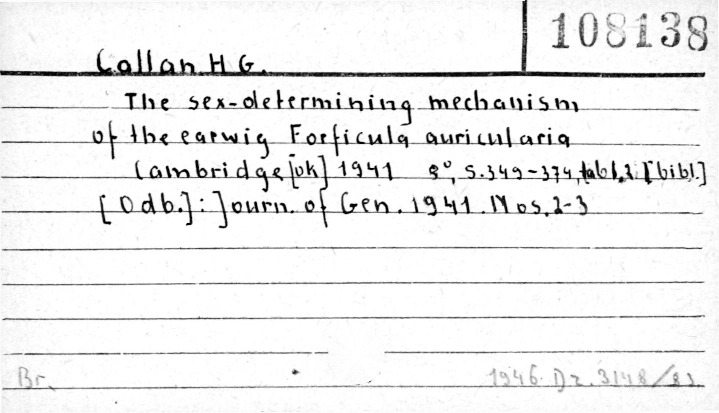 108138
Callan H G.
The sex-determining mechanism
of the earwig Forficula auricularia
Cambridge [ok] 1941 8°, S. 349-374, tabl. 2 [bibl.]
[Odb.]: Journ. of Gen. 1941. Nos. 2-3
Br. 1946. Dz. 3148/83.